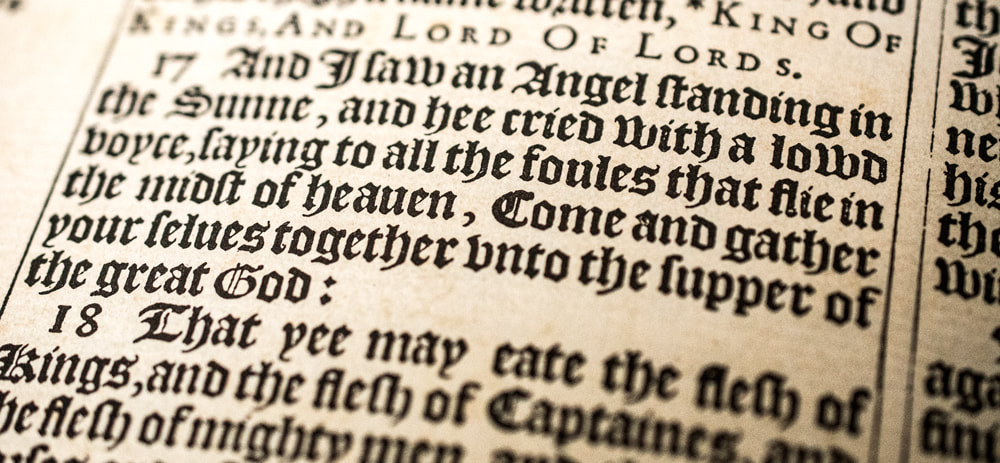 written, *KING OF
KINGS, AND LORD OF LORDS.
17 And I ſaw an Angel ſtanding in
the Sunne, and hee cried with a lowd
voyce, ſaying to all the foules that flie in
the midſt of heauen, Come and gather
your ſelues together vnto the ſupper of
the great God:
18 That yee may eate the fleſh of
Kings, and the fleſh of Captaines, and
he fleſh of mighty men